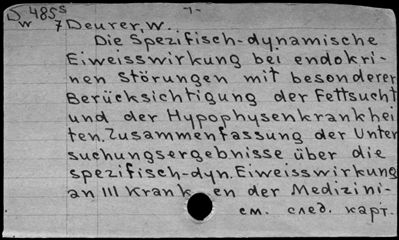 D 485s -7-
w 7 Deurer, W.
Die Spezifisch-dynamische
Eiweisswirkung bei endokri-
nen Störungen mit besonderer
Berücksichtigung der Fettsucht
und der Hypophysenkrankhei
ten. Zusammenfassung der Unter
suchungsergebnisse über die
spezifisch-dyn. Eiweisswirkung
an 111 Krank en der Medizini-
см. след. карт.